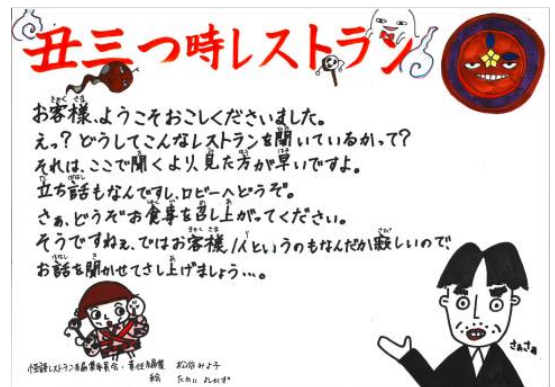 丑三つ時レストラン
お客様、ようこそおこしくださいました。
えっ?どうしてこんなレストランを開いているかって?
それは、ここで聞くより、見た方が早いですよ。
立ち話もなんですし、ロビーへどうぞ。
さぁ、どうぞお食事を召し上がってください。
そうですねぇ、ではお客様1人というのもなんだか寂しいので、
お話を聞かせてさし上げましょう…。
さぁさぁ
怪談レストラン編集委員会・責任編集 松谷みよ子
絵 たかい よしかず